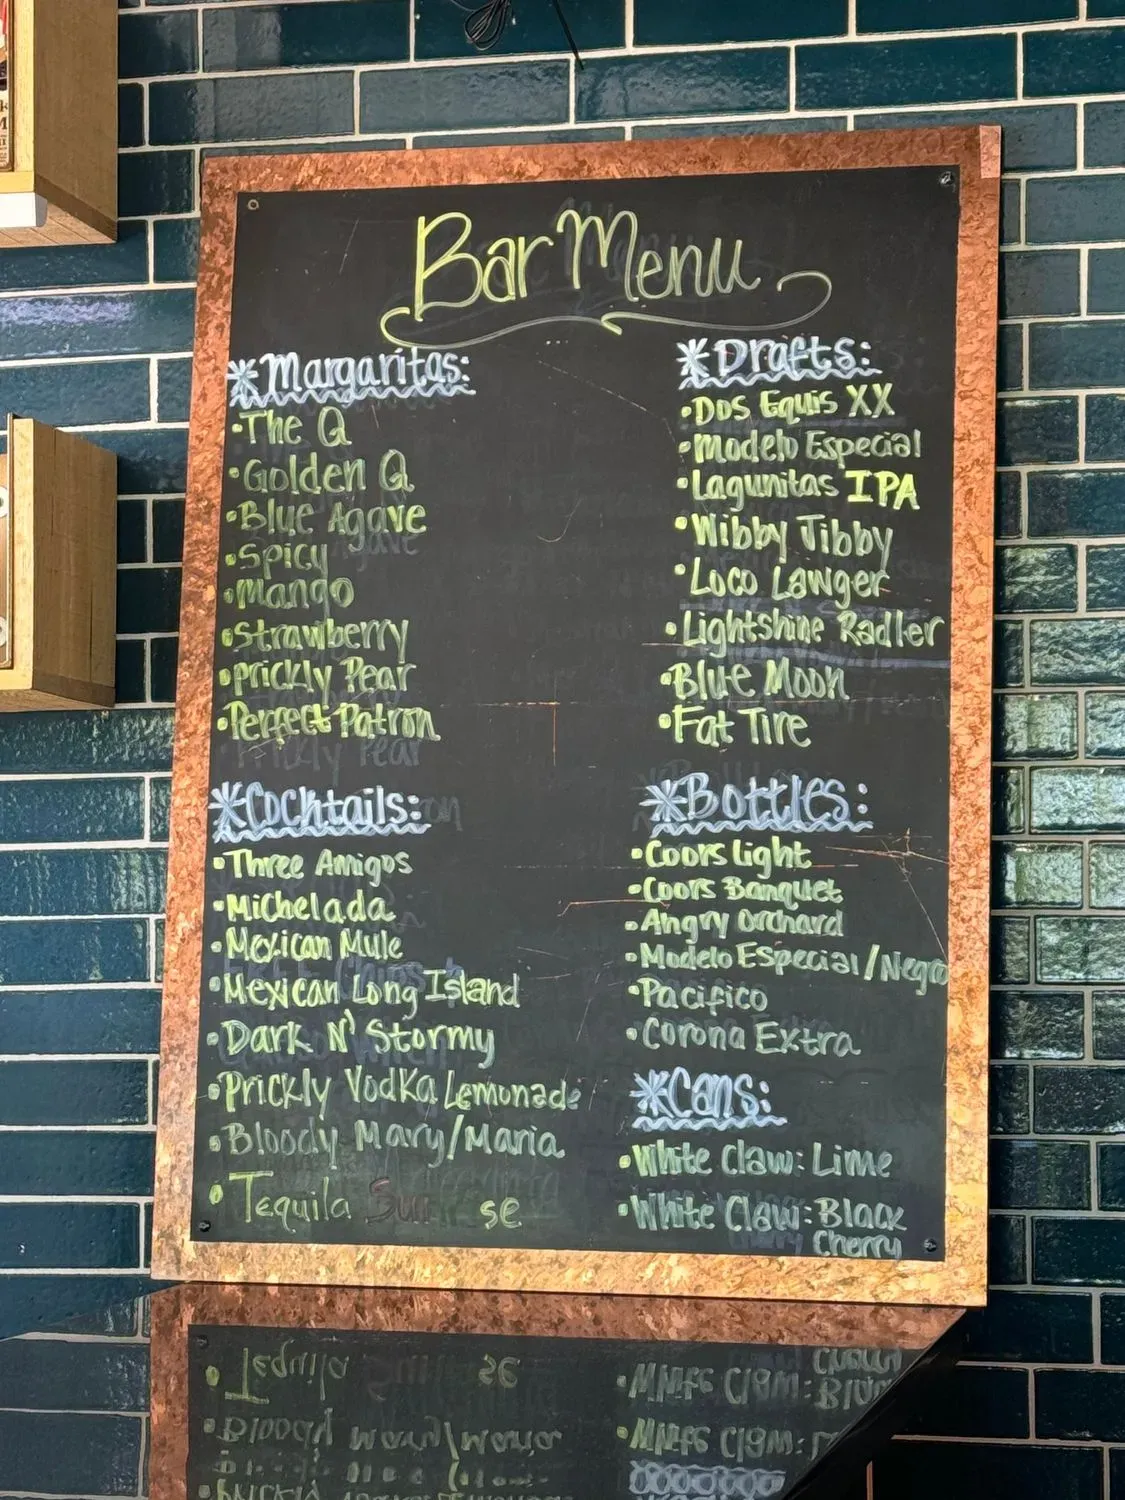 Bar Menu
*Margaritas:
•The Q
•Golden Q
•Blue Agave
•Spicy
•Mango
•Strawberry
•Prickly Pear
•Perfect Patron
*Cocktails:
•Three Amigos
•Michelada
•Mexican Mule
•Mexican Long Island
•Dark N' Stormy
•Prickly Vodka Lemonade
•Bloody Mary/Maria
•Tequila Sun se
*Drafts:
•Dos Equis XX
•Modelo Especial
•Lagunitas IPA
•Wibby Jibby
•Loco Lawger
•Lightshine Radler
•Blue Moon
•Fat Tire
*Bottles:
•Coors Light
•Coors Banquet
•Angry Orchard
•Modelo Especial/Negra
•Pacifico
•Corona Extra
*Cans:
•White Claw: Lime
•White Claw: Black
Cherry